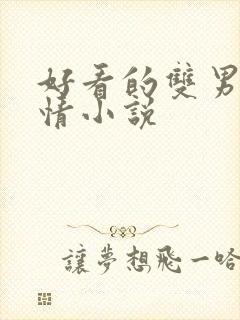 好看的雙男
情小説
讓夢想飛一哈